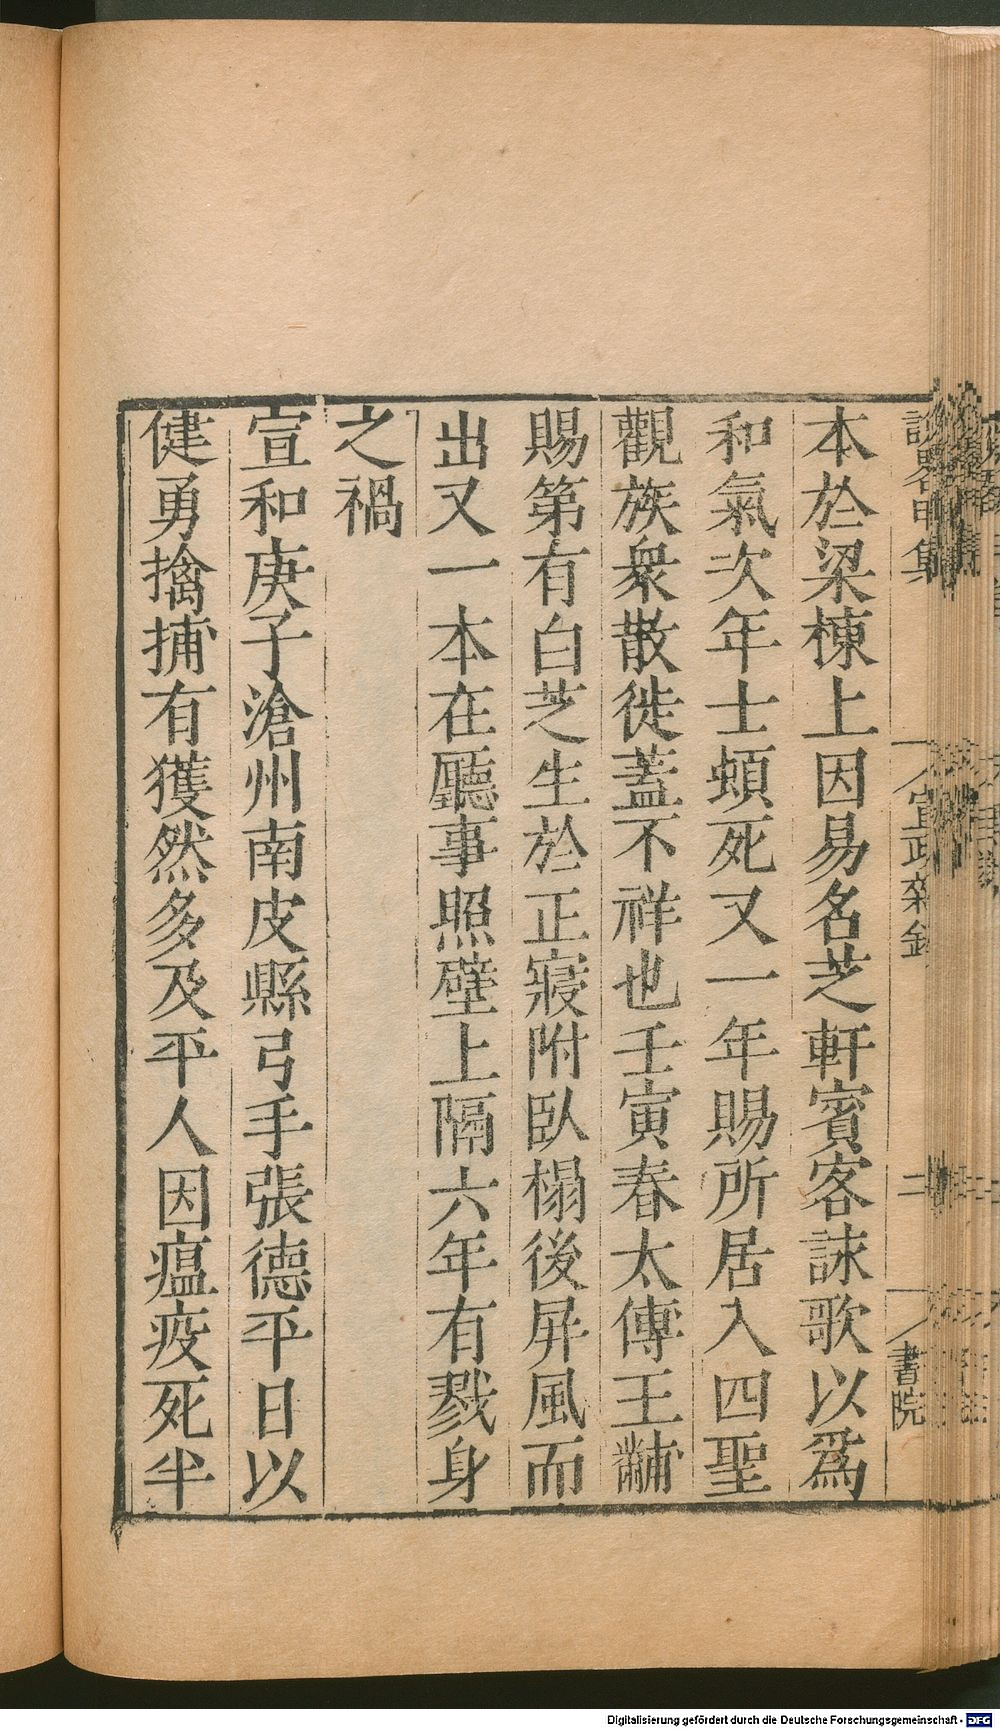 本於梁棟上因易名芝軒賓客詠歌以爲
和氣次年士䪴死又一年賜所居入四聖
觀族衆散徙蓋不祥也壬寅春太傅王黼
賜第有白芝生於正寢附臥榻後屛風而
出又一本在廳事照壁上隔六年有戮身
之禍
宣和庚子滄州南皮縣弓手張德平日以
健勇擒捕有獲然多及平人因瘟疫死半
宣政雜錄
二
書院
Digitalisierung gefördert durch die Deutsche Forschungsgemeinschaft - DFG